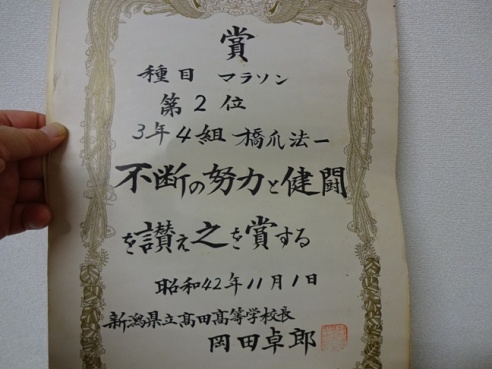 賞
種目 マラソン
第2位
3年4組 橋爪法一
不断の努力と健闘
を讃え之を賞する
昭和42年11月1日
新潟県立高田高等学校長
岡田卓郎